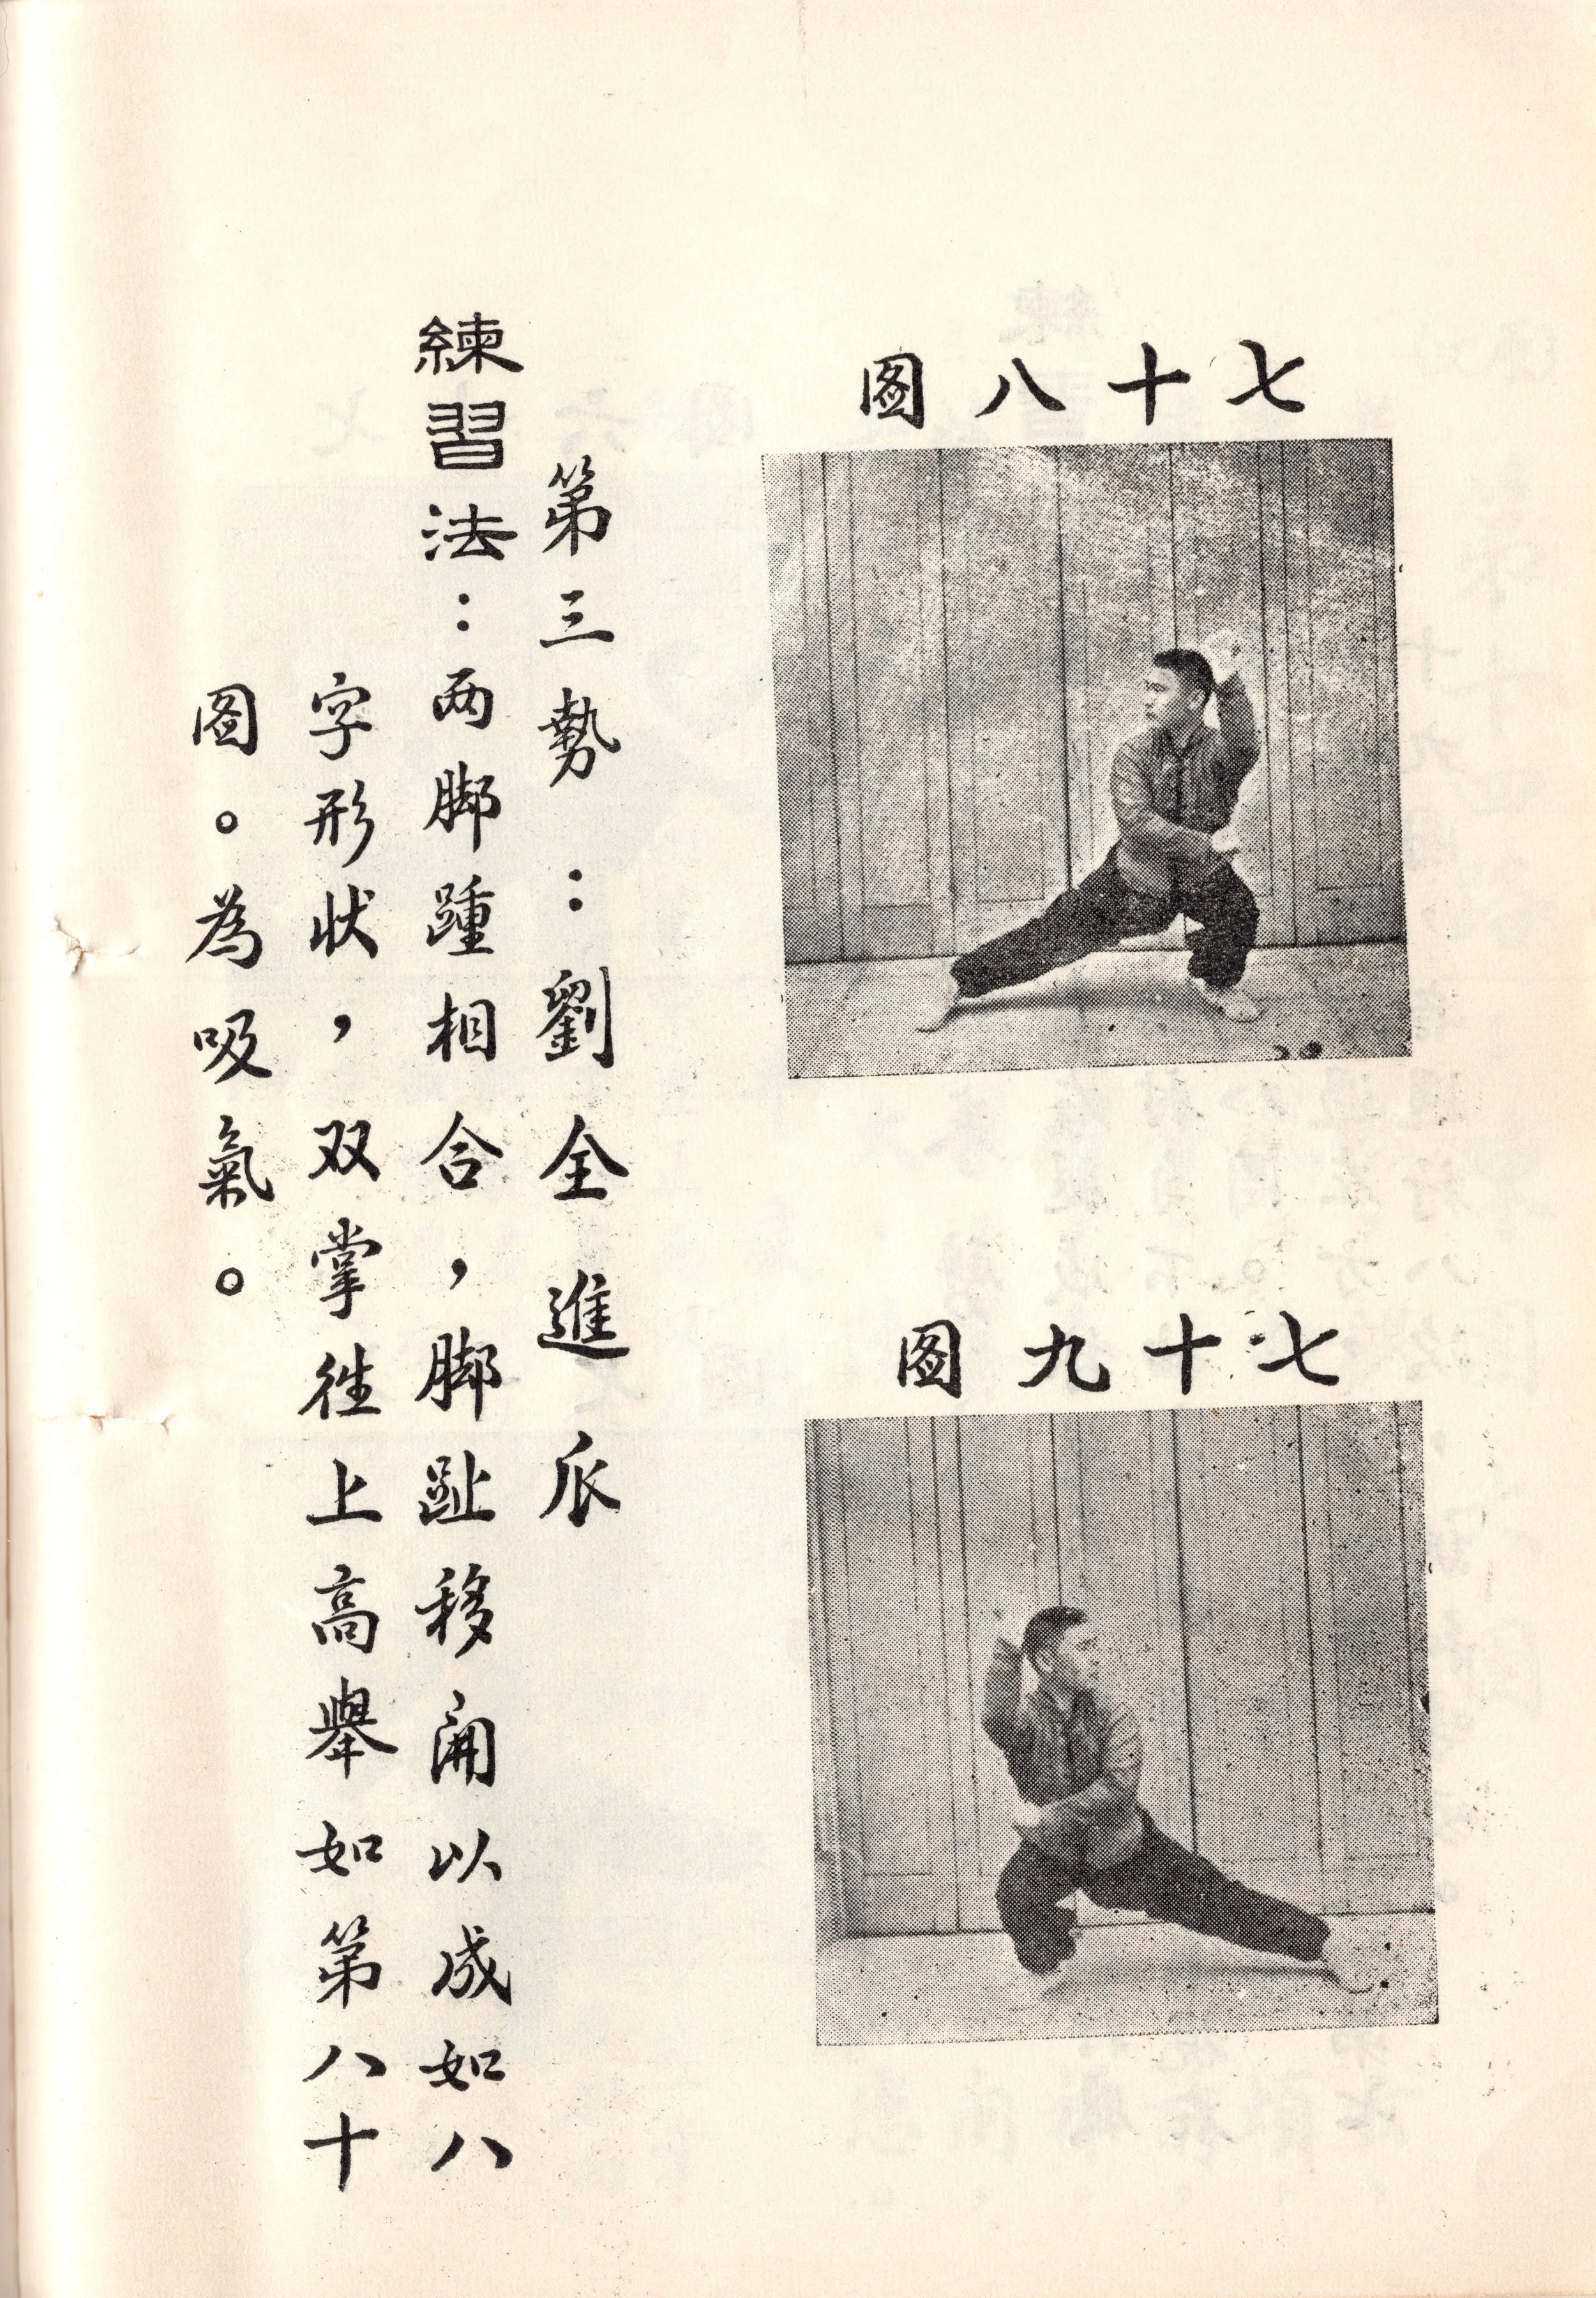 七十八图
七十九图
第三勢：劉全進瓜
練習法：两脚踵相合，脚趾移開以成如八
字形状，双掌往上高舉如第八十
图。為吸氣。